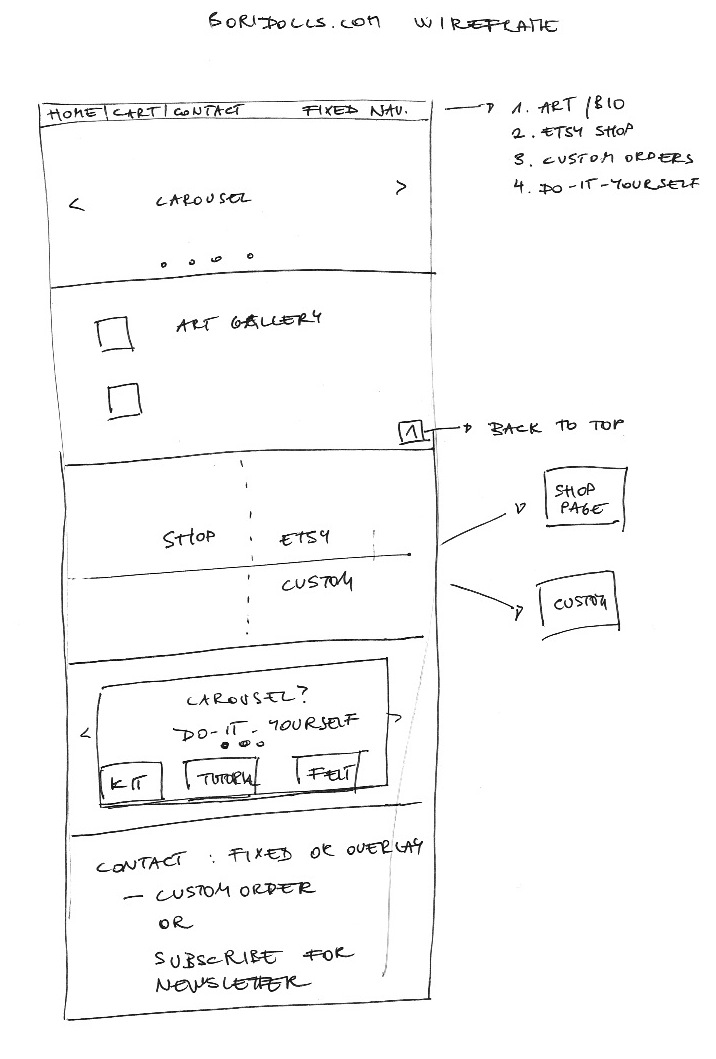 BORIDOLLS.COM WIREFRAME
HOME | CART | CONTACT FIXED NAV.
1. ART / BIO
2. ETSY SHOP
3. CUSTOM ORDERS
4. DO-IT-YOURSELF
< CAROUSEL >
ART GALLERY
1 BACK TO TOP
SHOP ETSY
CUSTOM
SHOP
PAGE
CUSTOM
CAROUSEL?
< DO-IT-YOURSELF >
KIT TUTORIAL FELT
CONTACT : FIXED OR OVERLAY
— CUSTOM ORDER
OR
SUBSCRIBE FOR
NEWSLETTER